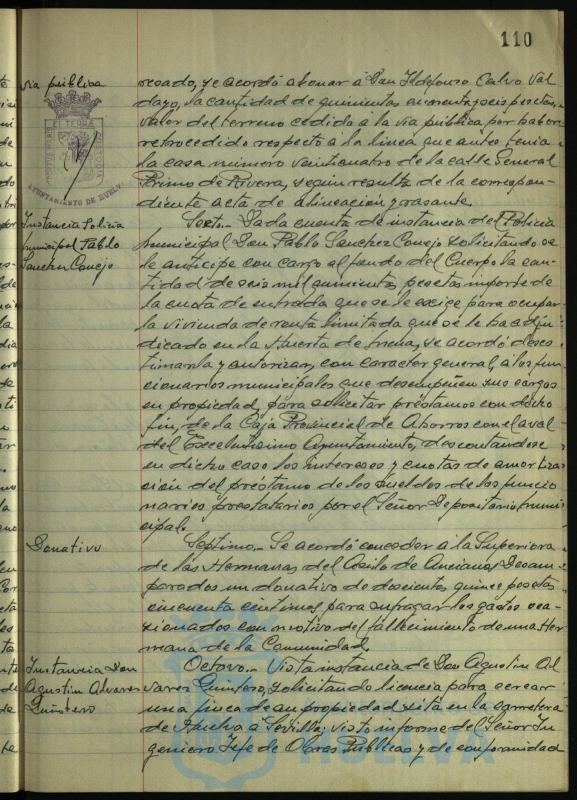 110
via pública
resado, se acordó abonar á Don Ildefonso Calvo Val
dayo, la cantidad de quinientas cuarenta y seis pesetas,
valor del terreno cedido á la via pública por haber
retrocedido respecto á la linea que antes tenia
la casa número veinticuatro de la calle General
Primo de Rivera, según resulta de la correspon-
diente acta de alineación y rasante.
Instancia Policia
municipal Pablo
Sanchez Conejo
Sexto.- Dada cuenta de instancia del Policia
municipal Don Pablo Sanchez Conejo solicitando se
le anticipe con cargo al fondo del Cuerpo la can-
tidad de seis mil quinientas pesetas importe de
la cuota de entrada que se le exige para ocupar
la vivienda de renta limitada que se le ha adju
dicado en la Huerta de Mena, se acordó deses
timarla y autorizar, con caracter general, a los fun-
cionarios municipales que desempeñen sus cargos
en propiedad, para solicitar préstamos con dicho
fin, de la Caja Provincial de Ahorros con el aval
del Excelentisimo Ayuntamiento, descontandose
en dicho caso los intereses y cuotas de amortiza
ción del préstamo de los sueldos de los funcio
narios prestatarios por el Señor Depositario muni
cipal.
Donativo
Septimo.- Se acordó conceder á la Superiora
de las Hermanas del Asilo de Ancianos Desam-
parados un donativo de doscientas quince pesetas
cincuenta centimos, para sufragar los gastos oca-
sionados con motivo del fallecimiento de una Her
mana de la Comunidad.
Instancia Don
Agustin Alvarez
Quintero
Octavo.- Vista instancia de Don Agustin Al
varez Quintero, solicitando licencia para cercar
una finca de su propiedad sita en la carretera
de Huelva á Sevilla; visto informe del Señor In
geniero Jefe de Obras Públicas y de conformidad
AYUNTAMIENTO DE HUELVA
HUELVA